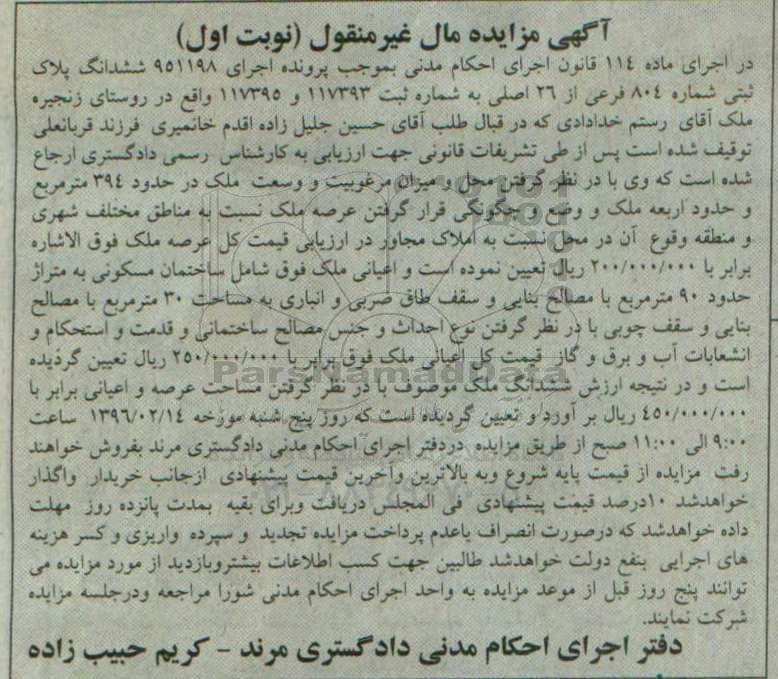 آگهی مزایده مال غیرمنقول (نوبت اول)
در اجرای ماده ۱۱۴ قانون اجرای احکام مدنی بموجب پرونده اجرای ۹۵۱۱۹۸ ششدانگ پلاک
ثبتی شماره ۸۰۴ فرعی از ۲۶ اصلی به شماره ثبت ۱۱۷۳۹۳ و ۱۱۷۳۹۵ واقع در روستای زنجیره
ملک آقای رستم خدادادی که در قبال طلب آقای حسین جلیل زاده اقدم خانمیری فرزند قربانعلی
توقیف شده است پس از طی تشریفات قانونی جهت ارزیابی به کارشناس رسمی دادگستری ارجاع
شده است که وی با در نظر گرفتن محل و میزان مرغوبیت و وسعت ملک در حدود ۳۹۴ مترمربع
و حدود اربعه ملک و وضع و چگونگی قرار گرفتن عرصه ملک نسبت به مناطق مختلف شهری
و منطقه وقوع آن در محل نسبت به املاک مجاور در ارزیابی قیمت کل عرصه ملک فوق الاشاره
برابر با ۲۰۰/۰۰۰/۰۰۰ ریال تعیین نموده است و اعیانی ملک فوق شامل ساختمان مسکونی به متراژ
حدود ۹۰ مترمربع با مصالح بنایی و سقف طاق ضربی و انباری به مساحت ۳۰ مترمربع با مصالح
بنایی و سقف چوبی با در نظر گرفتن نوع احداث و جنس مصالح ساختمانی و قدمت و استحکام و
انشعابات آب و برق و گاز قیمت کل اعیانی ملک فوق برابر با ۲۵۰/۰۰۰/۰۰۰ ریال تعیین گردیده
است و در نتیجه ارزش ششدانگ ملک موصوف با در نظر گرفتن مساحت عرصه و اعیانی برابر با
۴۵۰/۰۰۰/۰۰۰ ریال بر آورد و تعیین گردیده است که روز پنج شنبه مورخه ۱۳۹۶/۰۲/۱۴ ساعت
۹:۰۰ الی ۱۱:۰۰ صبح از طریق مزایده دردفتر اجرای احکام مدنی دادگستری مرند بفروش خواهند
رفت مزایده از قیمت پایه شروع وبه بالاترین وآخرین قیمت پیشنهادی ازجانب خریدار واگذار
خواهدشد ۱۰درصد قیمت پیشنهادی فی المجلس دریافت وبرای بقیه بمدت پانزده روز مهلت
داده خواهدشد که درصورت انصراف یاعدم پرداخت مزایده تجدید و سپرده واریزی و کسر هزینه
های اجرایی بنفع دولت خواهدشد طالبین جهت کسب اطلاعات بیشتروبازدید از مورد مزایده می
توانند پنج روز قبل از موعد مزایده به واحد اجرای احکام مدنی شورا مراجعه ودرجلسه مزایده
شرکت نمایند.
دفتر اجرای احکام مدنی دادگستری مرند - کریم حبیب زاده
ParsNamadData